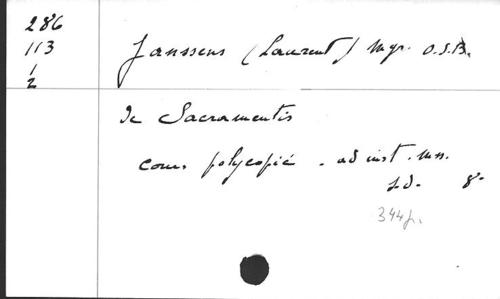 286
113
1
2
Janssens (Laurent) Mgr. O.S.B.
De Sacramentis
cours polycopié - ad inst. mss.
s.d. 8°
344 p.